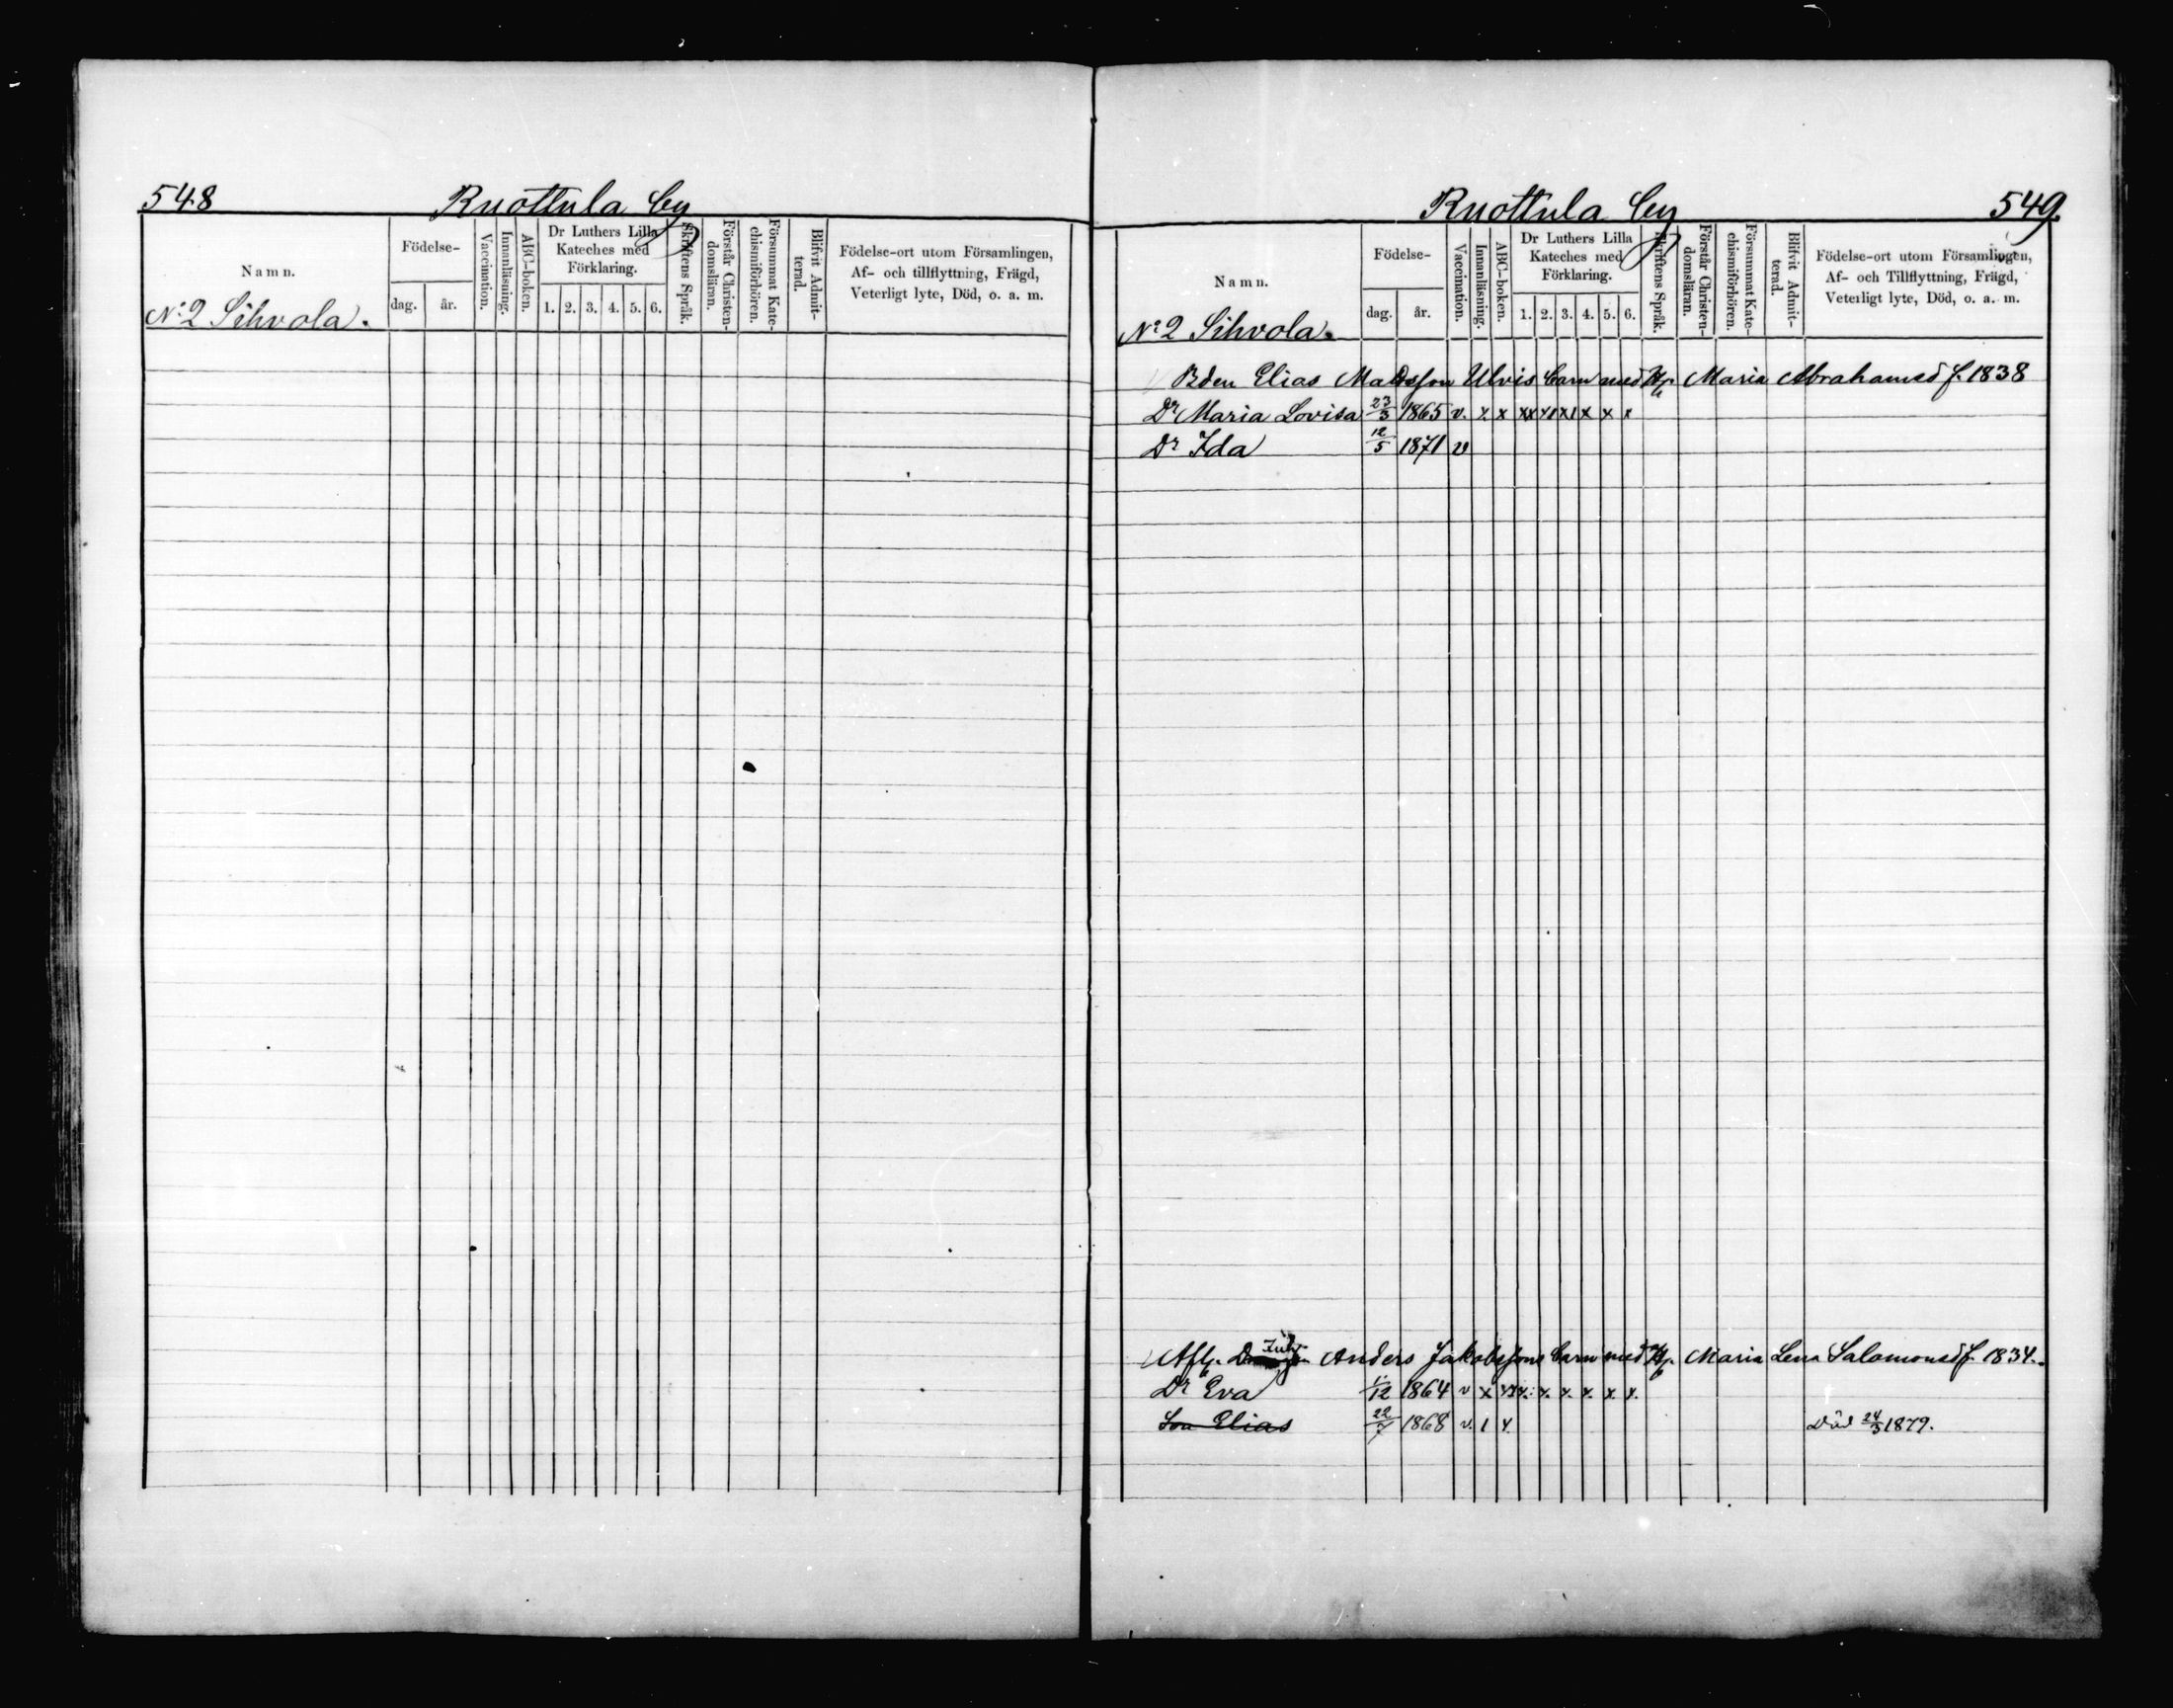 548 Ruottula by
Namn. Födelse- dag. år. Vaccination. Innanläsning. ABC-boken. Dr Luthers Lilla Kateches med Förklaring. 1. 2. 3. 4. 5. 6. Skriftens Språk. Förstår Christendomsläran. Försummat Katechismiförhören. Blifvit Admitterad. Födelse-ort utom Församlingen, Af- och tillflyttning, Frägd, Veterligt lyte, Död, o. a. m.
No 2 Sihvola.
Ruottula by 549.
Namn. Födelse- dag. år. Vaccination. Innanläsning. ABC-boken. Dr Luthers Lilla Kateches med Förklaring. 1. 2. 3. 4. 5. 6. Skriftens Språk. Förstår Christen-domsläran. Försummat Kate-chismiförhören. Blifvit Admit-terad. Födelse-ort utom Församlingen, Af- och Tillflyttning, Frägd, Veterligt lyte, Död, o. a. m.
No 2 Sihvola.
Bden Elias Matsson Ulvis barn med H. Maria Abrahamsd f. 1838
Dr Maria Lovisa 23/3 1865 v. x x xx x1 x1 x x x
Dr Ida 12/5 1871 v
Afl. Anders Jakobssons barn med H. Maria Lena Salomonsd f. 1834.
Dr Eva 1/12 1864 v x x x. x. x. x. x x.
Son Elias 22/7 1868 v. 1 x Död 24/3 1879.